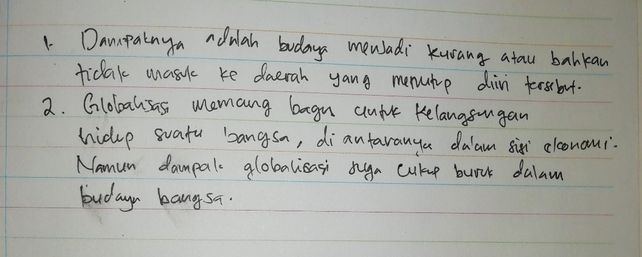 1. Dampaknya adalah budaya menjadi kurang atau bahkan
tidak masuk ke daerah yang menutup diri tersebut.
2. Globalisasi memang bagus untuk kelangsungan
hidup suatu bangsa, di antaranya dalam sisi ekonomi.
Namun dampak globalisasi juga cukup buruk dalam
budaya bangsa.